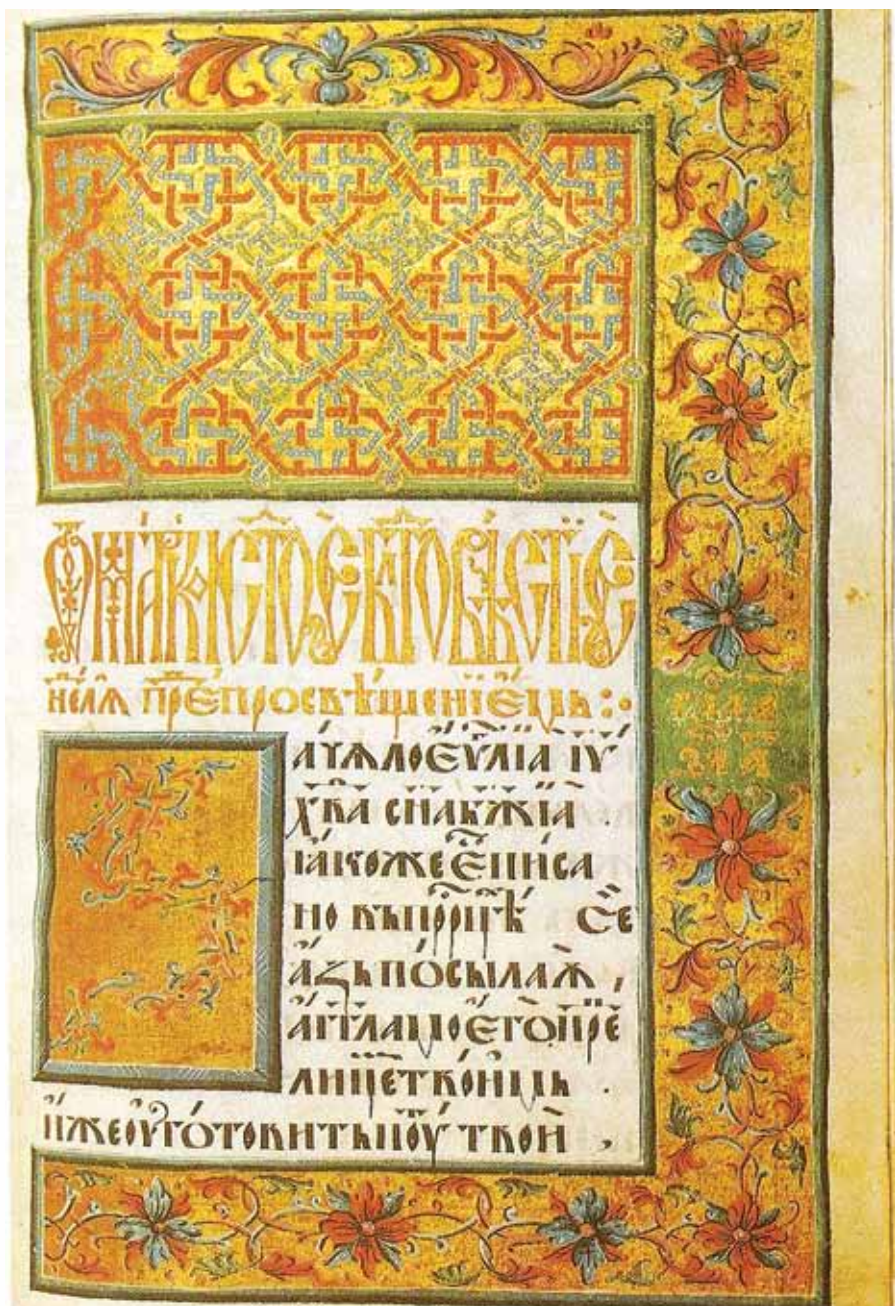 Ѿ МАРКА СТ҃ОЕ БЛГ҃ОВѢСТЇЕ
неⷣлѧ прⷣе просвѣщенїеⷨмь :·
ачѧло еѵ҃лїа іѵ҃
хв҃а сн҃а бж҃їа .
ꙗкоже е҆ⷭ писа
но въ прⷪрⷪцѣ се
а҆зъ посылаѧ ,
а҆гг҃ла моего преⷣ
лицеⷨ твоимь .
иже оуготовить поуⷮ твои ,